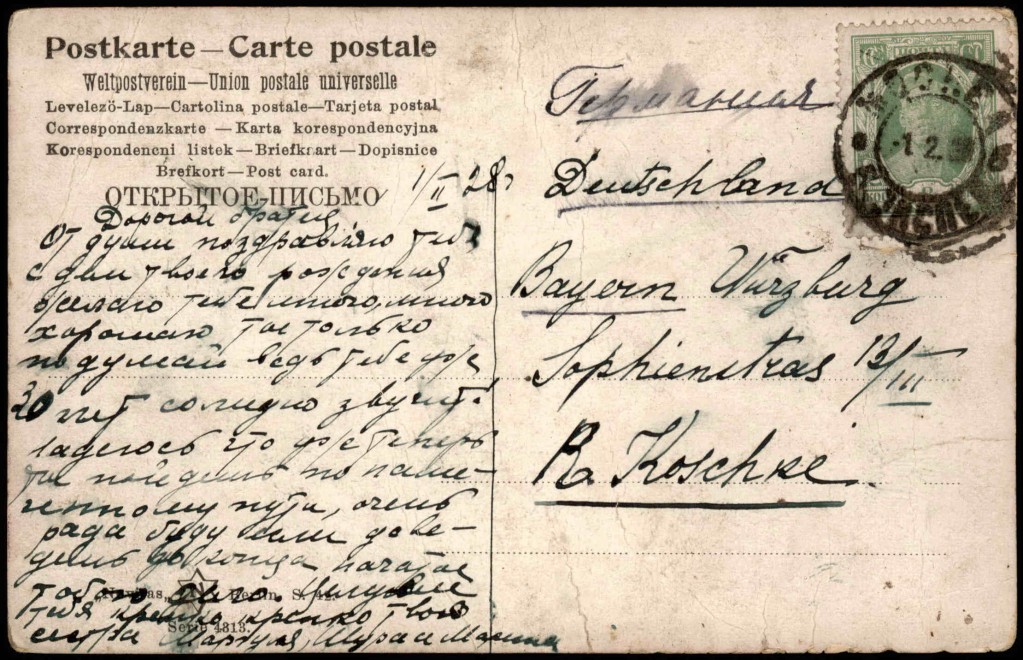 Postkarte — Carte postale
Weltpostverein — Union postale universelle
Levelező-Lap — Cartolina postale — Tarjeta postal
Correspondenzkarte — Karta korespondencyjna
Korespondencni listek — Briefkaart — Dopisnice
Brefkort — Post card.
ОТКРЫТОЕ-ПИСЬМО
1/II 28 г
Дорогой братец
От души поздравляю тебя
с днем твоего рождения
желаю тебе много, много
хорошаго только
подумай ведь тебе уже
30 лет солидно звучит.
надеюсь что уже теперь
ты пойдешь по наме-
ченному пути, очень
рада буду если дове-
дешь до конца начатое
тобою дело. Целуем
тебя крепко крепко твои
сестра Маруся, Шура и Марина
"Novitas," Berlin, S. 42.
Serie 4313.
Германия
Deutschland
Bayern Würzburg
Sophienstras 13/III
R. Koschke
МОСКВА
1.2.